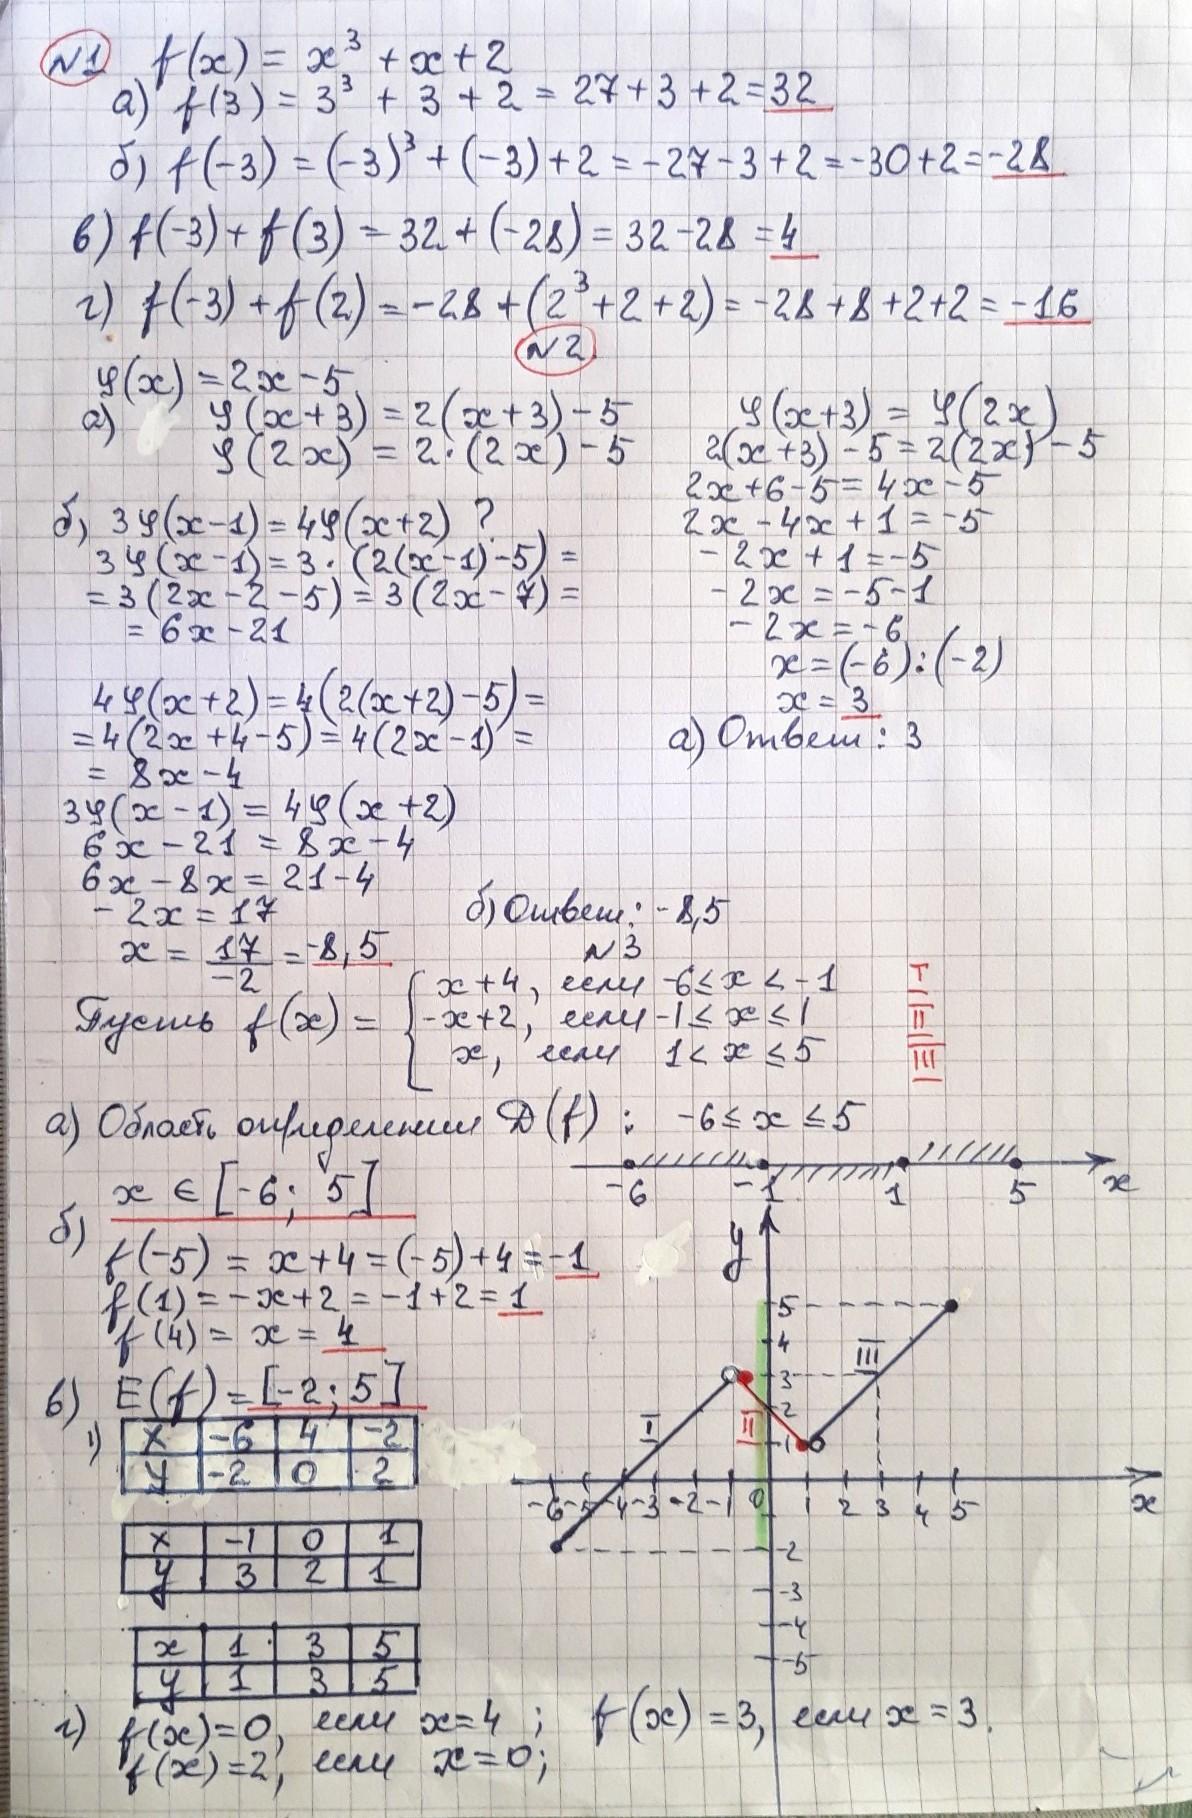 №1 f(x) = x³ + x + 2
а) f(3) = 3³ + 3 + 2 = 27 + 3 + 2 = 32
б) f(-3) = (-3)³ + (-3) + 2 = -27 - 3 + 2 = -30 + 2 = -28
в) f(-3) + f(3) = 32 + (-28) = 32 - 28 = 4
г) f(-3) + f(2) = -28 + (2³ + 2 + 2) = -28 + 8 + 2 + 2 = -16
№2
φ(x) = 2x - 5
а) φ(x+3) = 2(x+3) - 5
φ(2x) = 2·(2x) - 5
φ(x+3) = φ(2x)
2(x+3) - 5 = 2(2x) - 5
2x + 6 - 5 = 4x - 5
2x - 4x + 1 = -5
-2x + 1 = -5
-2x = -5 - 1
-2x = -6
x = (-6) : (-2)
x = 3
а) Ответ: 3
б) 3φ(x-1) = 4φ(x+2) ?
3φ(x-1) = 3·(2(x-1)-5) =
= 3(2x-2-5) = 3(2x-7) =
= 6x - 21
4φ(x+2) = 4(2(x+2)-5) =
= 4(2x+4-5) = 4(2x-1) =
= 8x - 4
3φ(x-1) = 4φ(x+2)
6x - 21 = 8x - 4
6x - 8x = 21 - 4
-2x = 17
x = 17/-2 = -8,5
б) Ответ: -8,5
№3
Пусть f(x) = { x+4, если -6 ≤ x < -1 I
-x+2, если -1 ≤ x ≤ 1 II
x, если 1 < x ≤ 5 III
а) Область определения D(f) : -6 ≤ x ≤ 5
-6 -1 1 5 x
x ∈ [-6; 5]
б)
f(-5) = x+4 = (-5)+4 = -1
f(1) = -x+2 = -1+2 = 1
f(4) = x = 4
в) E(f) = [-2; 5]
1) x -6 4 -2
y -2 0 2
x -1 0 1
y 3 2 1
x 1 3 5
y 1 3 5
y
5
4
3
2
1
I II III
-6 -5 -4 -3 -2 -1 0 1 2 3 4 5 x
-2
-3
-4
-5
г) f(x)=0, если x=4 ; f(x) = 3, если x = 3.
f(x)=2, если x=0;